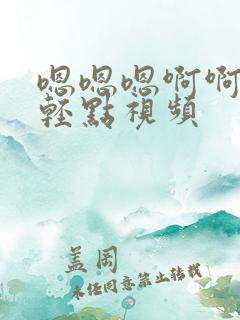 嗯嗯嗯啊啊
輕點視頻
蓋岡
未任同意禁止转载